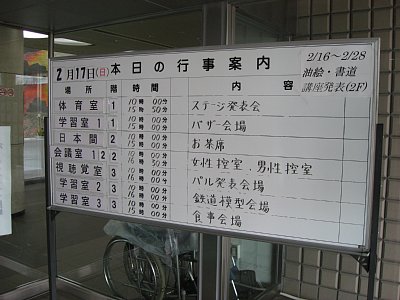 2月17日(日)本日の行事案内
2/16〜2/28
油絵・書道
講座発表(2F)
場所 階 時間 内容
体育室 1 10時00分 15時50分 ステージ発表会
学習室1 1 10時00分 15時 バザー会場
日本間 2 10時00分 15時 お茶席
会議室12 2 10時00分 16時 女性控室、男性控室
視聴覚室 3 10時00分 16時 パル発表会場
学習室2 3 10時00分 15時 鉄道模型会場
学習室3 3 10時00分 15時 食事会場